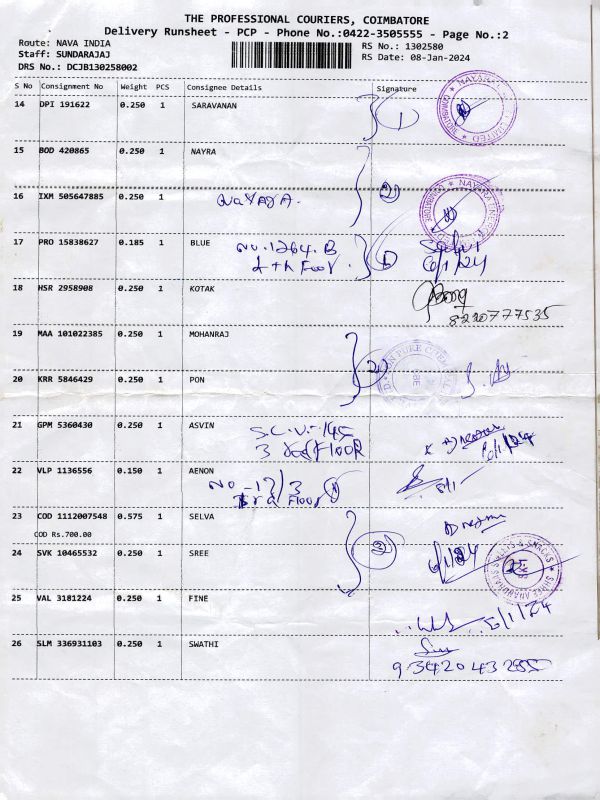 THE PROFESSIONAL COURIERS, COIMBATORE
Delivery Runsheet - PCP - Phone No.:0422-3505555 - Page No.:2
Route: NAVA INDIA
RS No.: 1302580
Staff: SUNDARAJAJ
RS Date: 08-Jan-2024
DRS No.: DCJB130258002
S No Consignment No Weight PCS Consignee Details Signature
14 DPI 191622 0.250 1 SARAVANAN
15 BOD 420865 0.250 1 NAYRA
16 IXM 505647885 0.250 1
17 PRO 15838627 0.185 1 BLUE
No. 1264. B
6/1/24
18 HSR 2958908 0.250 1 KOTAK
8220777535
19 MAA 101022385 0.250 1 MOHANRAJ
20 KRR 5846429 0.250 1 PON
21 GPM 5360430 0.250 1 ASVIN
S.C.V. 145
3 FLOOR
22 VLP 1136556 0.150 1 AENON
NO - 17/3
3rd Floor
23 COD 1112007548 0.575 1 SELVA
COD Rs.700.00
24 SVK 10465532 0.250 1 SREE
25 VAL 3181224 0.250 1 FINE
26 SLM 336931103 0.250 1 SWATHI